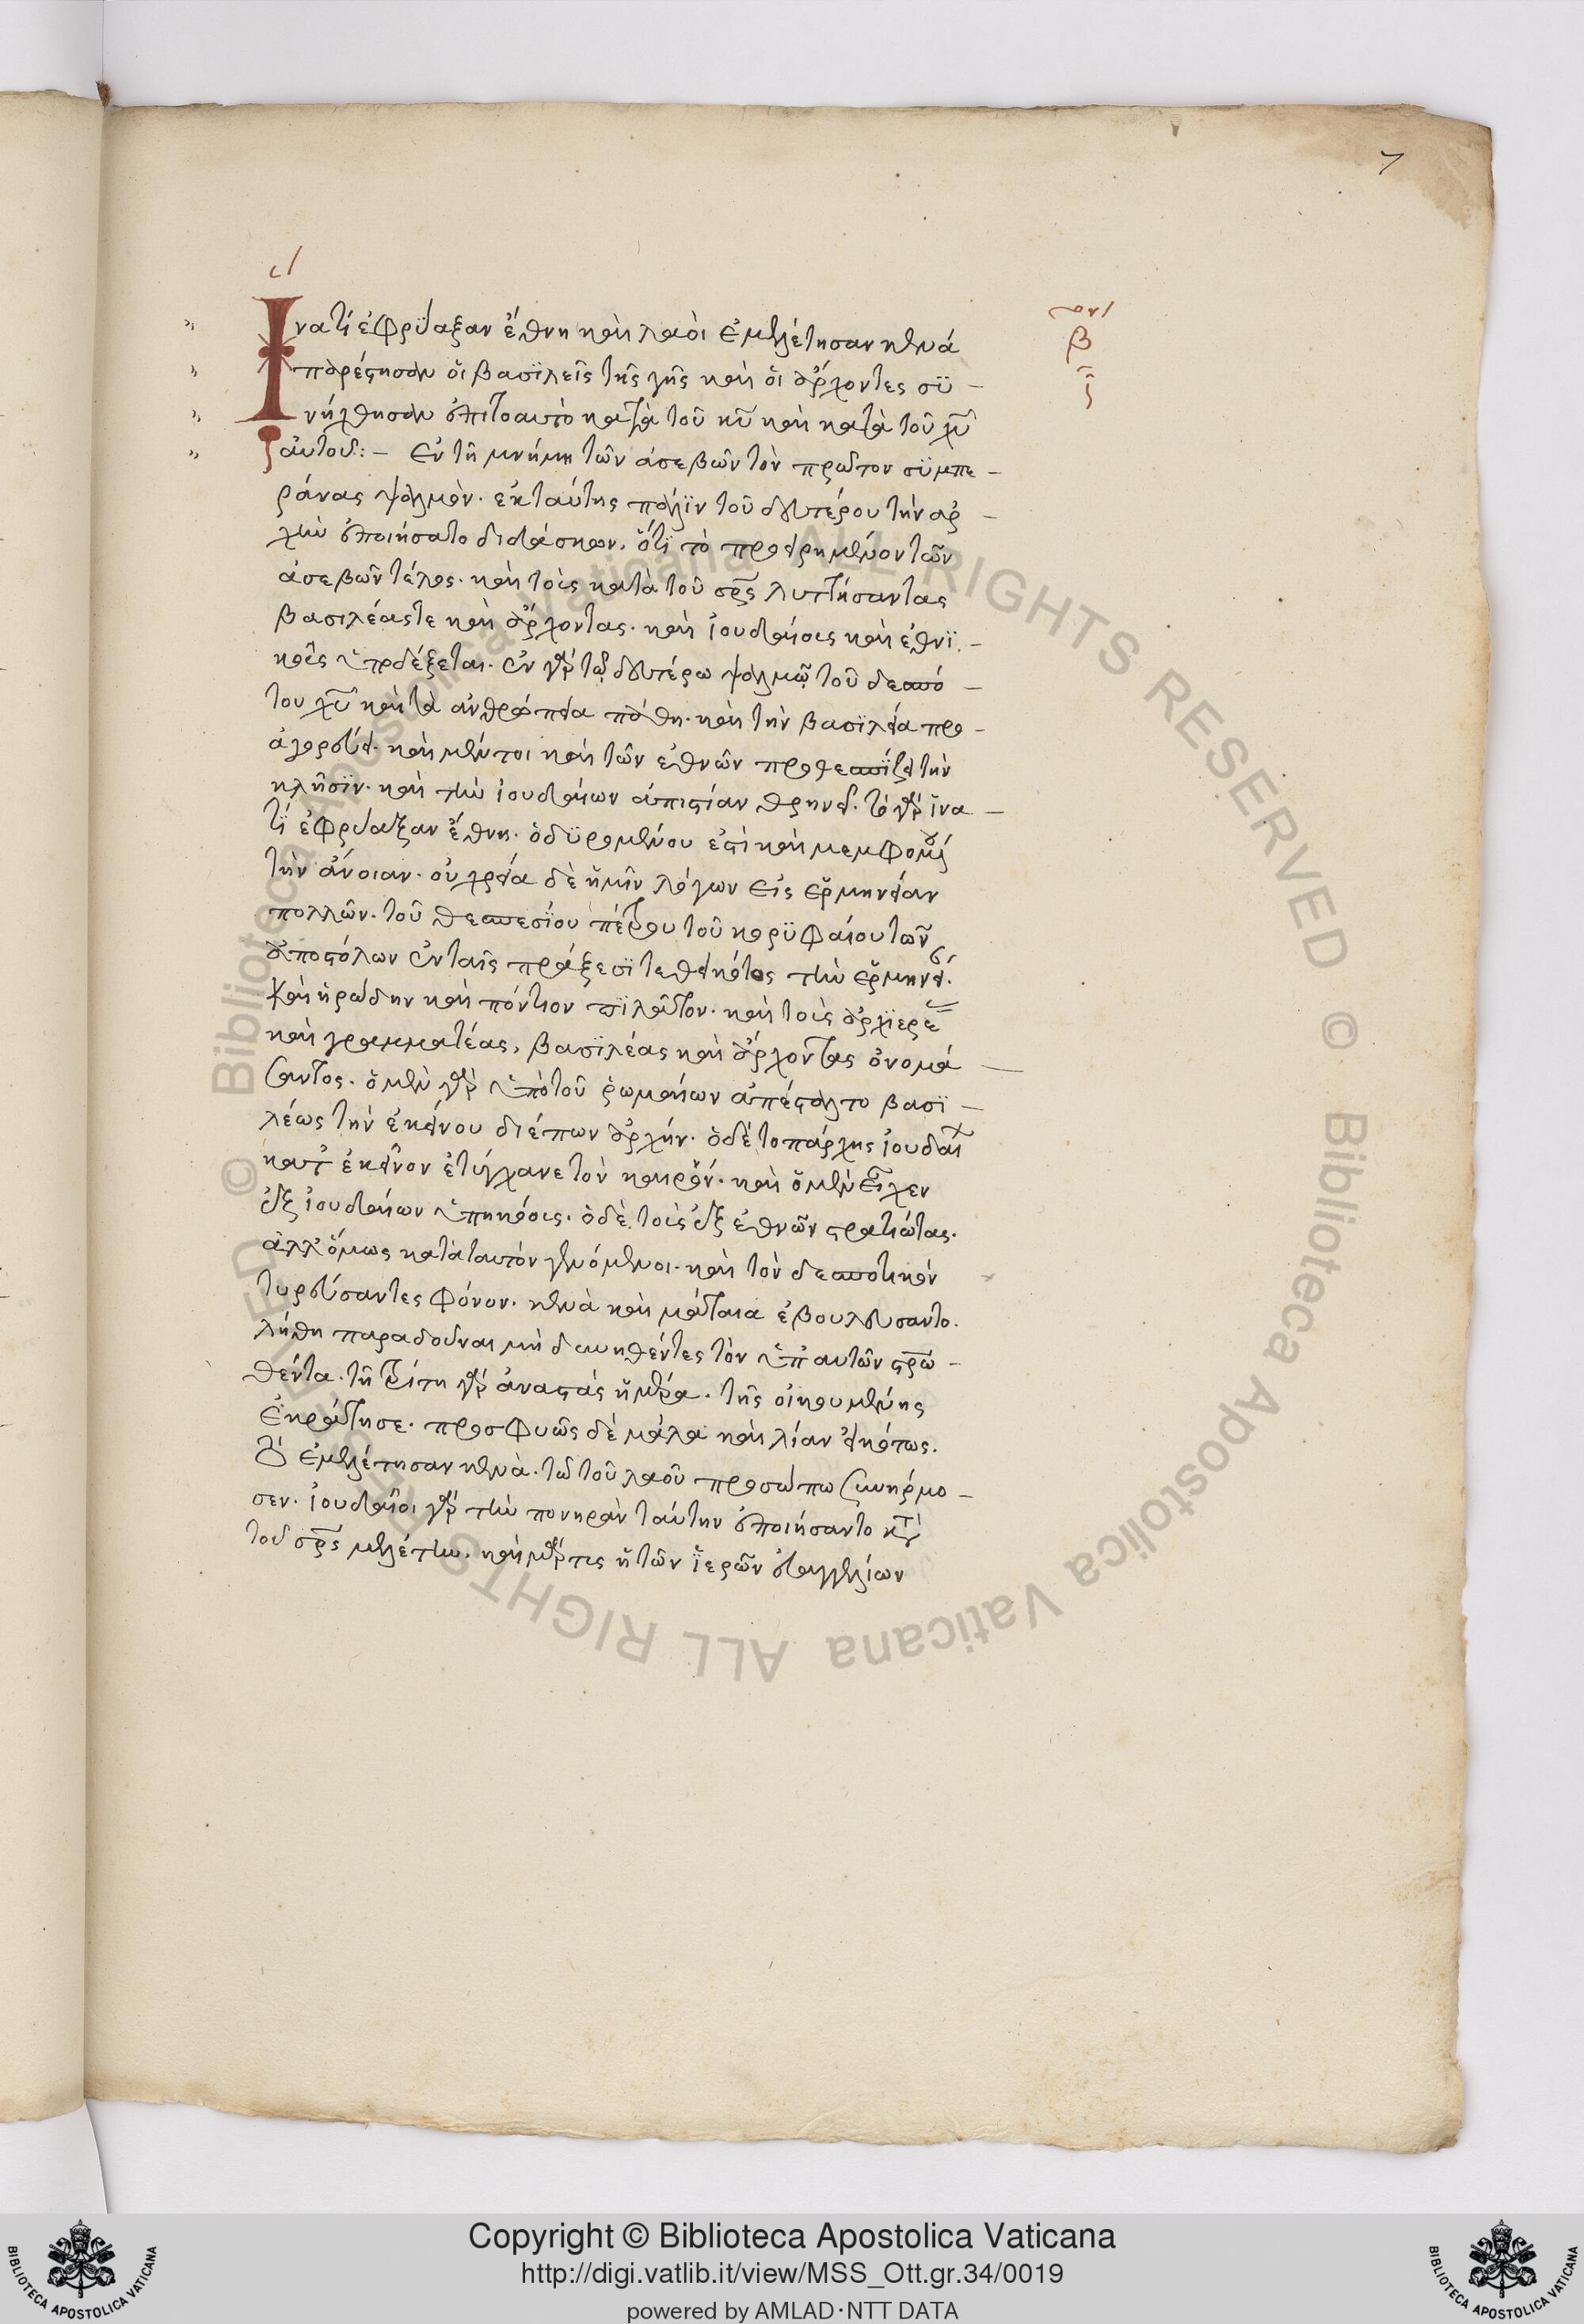 7
α΄
Ἱνατί ἐφρύαξαν ἔθνη καὶ λαοὶ ἐμελέτησαν κενά
παρέστησαν οἱ βασϊλεῖς τῆς γῆς καὶ οἱ ἄρχοντες σϋ –
νήχθησαν ἐπιτοαυτὸ κατὰ τοῦ κ̅υ̅ καὶ κατὰ τοῦ χ̅υ̅
αὐτοῦ: – Ἐν τῆ μνήμη τῶν ἀσεβῶν τὸν πρῶτον σϋμπε –
ράνας ψαλμὸν. ἐκ ταύτης πάλϊν τοῦ δευτέρου τὴν ἀρ –
χὴν ἐποιήσατο διδάσκων, ὅτϊ τὸ προειρημένον τῶν
ἀσεβῶν τέλος. καὶ τοὺς κατὰ τοῦ σ̅ρ̅ς̅ λυττήσαντας
βασιλέας τε καὶ ἄρχοντας. καὶ ἰουδαίους καὶ ἐθνϊ –
κοὺς ὑποδέξεται. ἐν γὰρ τῶ δευτέρω ψαλμῶ τοῦ δεσπό –
του χ̅υ̅ καὶ τὰ ἀνθρώπεια πάθη. καὶ τὴν βασϊλεία προ –
αγορεύει. καὶ μέντοι καὶ τῶν ἐθνῶν προθεσπίζει τὴν
κλῆσϊν. καὶ τὴν ἰουδαίων ἀπιστίαν θρηνεῖ. τὸ γὰρ ἵνα –
τϊ ἐφρύαξαν ἔθνη. ὀδϋρομένου ἐστὶ καὶ μεμφομένου
τὴν ἄνοιαν. οὐ χρεία δὲ ἡμῖν λόγων εἰς ἑρμηνείαν
πολλῶν. τοῦ θεσπεσίου πέτρου τοῦ κορϋφαίου τῶν
ἀποστόλων ἐν ταῖς πράξεσϊ τεθεικότος τὴν ἑρμηνεί.
καὶ ἡρώδην καὶ πόντιον πϊλᾶτον. καὶ τοὺς ἀρχϊερε
καὶ γραμματέας, βασϊλέας καὶ ἄρχοντας ὀνομά –
σαντος. ὁ μὲν γὰρ ὑπὸ τοῦ ῥωμαίων ἀπέσταλτο βασϊ –
λέως τὴν ἐκείνου διέπων ἀρχήν. ὁ δὲ τοπάρχης ἰουδαί
κατ᾽ ἐκεῖνον ἐτύγχανε τὸν καιρόν. καὶ ὁ μὲν εἶχεν
ἐξ ἰουδαίων ὑπηκόους. ὁ δὲ τοὺς ἐξ ἐθνῶν στρατιώτας.
ἀλλ᾽ ὅμως κατὰ ταυτὸν γενόμενοι. καὶ τὸν δεσποτικόν
τυρεύσαντες φόνον. κενὰ καὶ μάταια ἐβουλεύσαντο.
λήθη παραδοῦναι μὴ δυνηθέντες τὸν ὑπ᾽ αυτῶν στρω –
θέντα. τῆ τρίτη γὰρ ἀναστάς ἡμέρα. τῆς οἰκουμένης
ἐκράτησε. προσφυῶς δὲ μάλα καὶ λίαν εἰκότως.
τὸ ἐμελέτησαν κενὰ. τῶ τοῦ λαοῦ προσώπω συνήρμο –
σεν. ἰουδαῖοι γὰρ τὴν πονηρὰν ταύτην ἐποιήσαντο κατὰ
τοῦ σ̅ρ̅ς̅ μελέτην. καὶ μάρτυς ἡ τῶν ἱερῶν εὐαγγελίων
β
Copyright © Biblioteca Apostolica Vaticana
http://digi.vatlib.it/view/MSS_Ott.gr.34/0019
powered by AMLAD·NTT DATA
BIBLIOTECA APOSTOLICA VATICANA
BIBLIOTECA APOSTOLICA VATICANA
© Biblioteca Apostolica Vaticana ALL RIGHTS RESERVED © Biblioteca Apostolica Vaticana ALL RIGHTS RESERVED